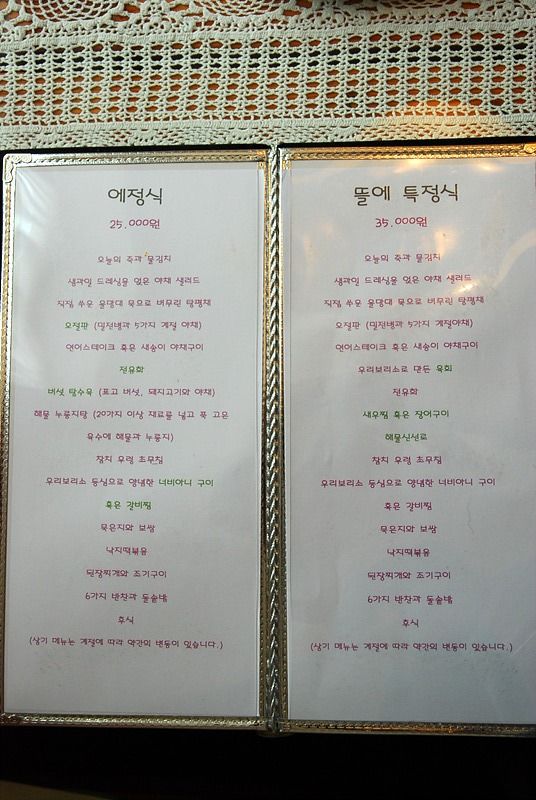 에정식
25,000원
오늘의 죽과 물김치
생과일 드레싱을 얹은 야채 샐러드
직접 쑤운 올방대 묵으로 버무린 탕평채
오절판 (밀전병과 5가지 계절 야채)
연어스테이크 혹은 새송이 야채구이
전유화
버섯 탕수육 (표고 버섯, 돼지고기와 야채)
해물 누룽지탕 (20가지 이상 재료를 넣고 푹 고은
육수에 해물과 누룽지)
참치 우렁 초무침
우리보리소 등심으로 양념한 너비아니 구이
혹은 갈비찜
묵은지와 보쌈
낙지떡볶음
된장찌개와 조기구이
6가지 반찬과 돌솥밥
후식
(상기 메뉴는 계절에 따라 약간의 변동이 있습니다.)
뜰에 특정식
35,000원
오늘의 죽과 물김치
생과일 드레싱을 얹은 야채 샐러드
직접 쑤운 올방대 묵으로 버무린 탕평채
오절판 (밀전병과 5가지 계절야채)
연어스테이크 혹은 새송이 야채구이
우리보리소로 만든 육회
전유화
새우찜 혹은 장어구이
해물신선로
참치 우렁 초무침
우리보리소 등심으로 양념한 너비아니 구이
혹은 갈비찜
묵은지와 보쌈
낙지떡볶음
된장찌개와 조기구이
6가지 반찬과 돌솥밥
후식
(상기 메뉴는 계절에 따라 약간의 변동이 있습니다.)